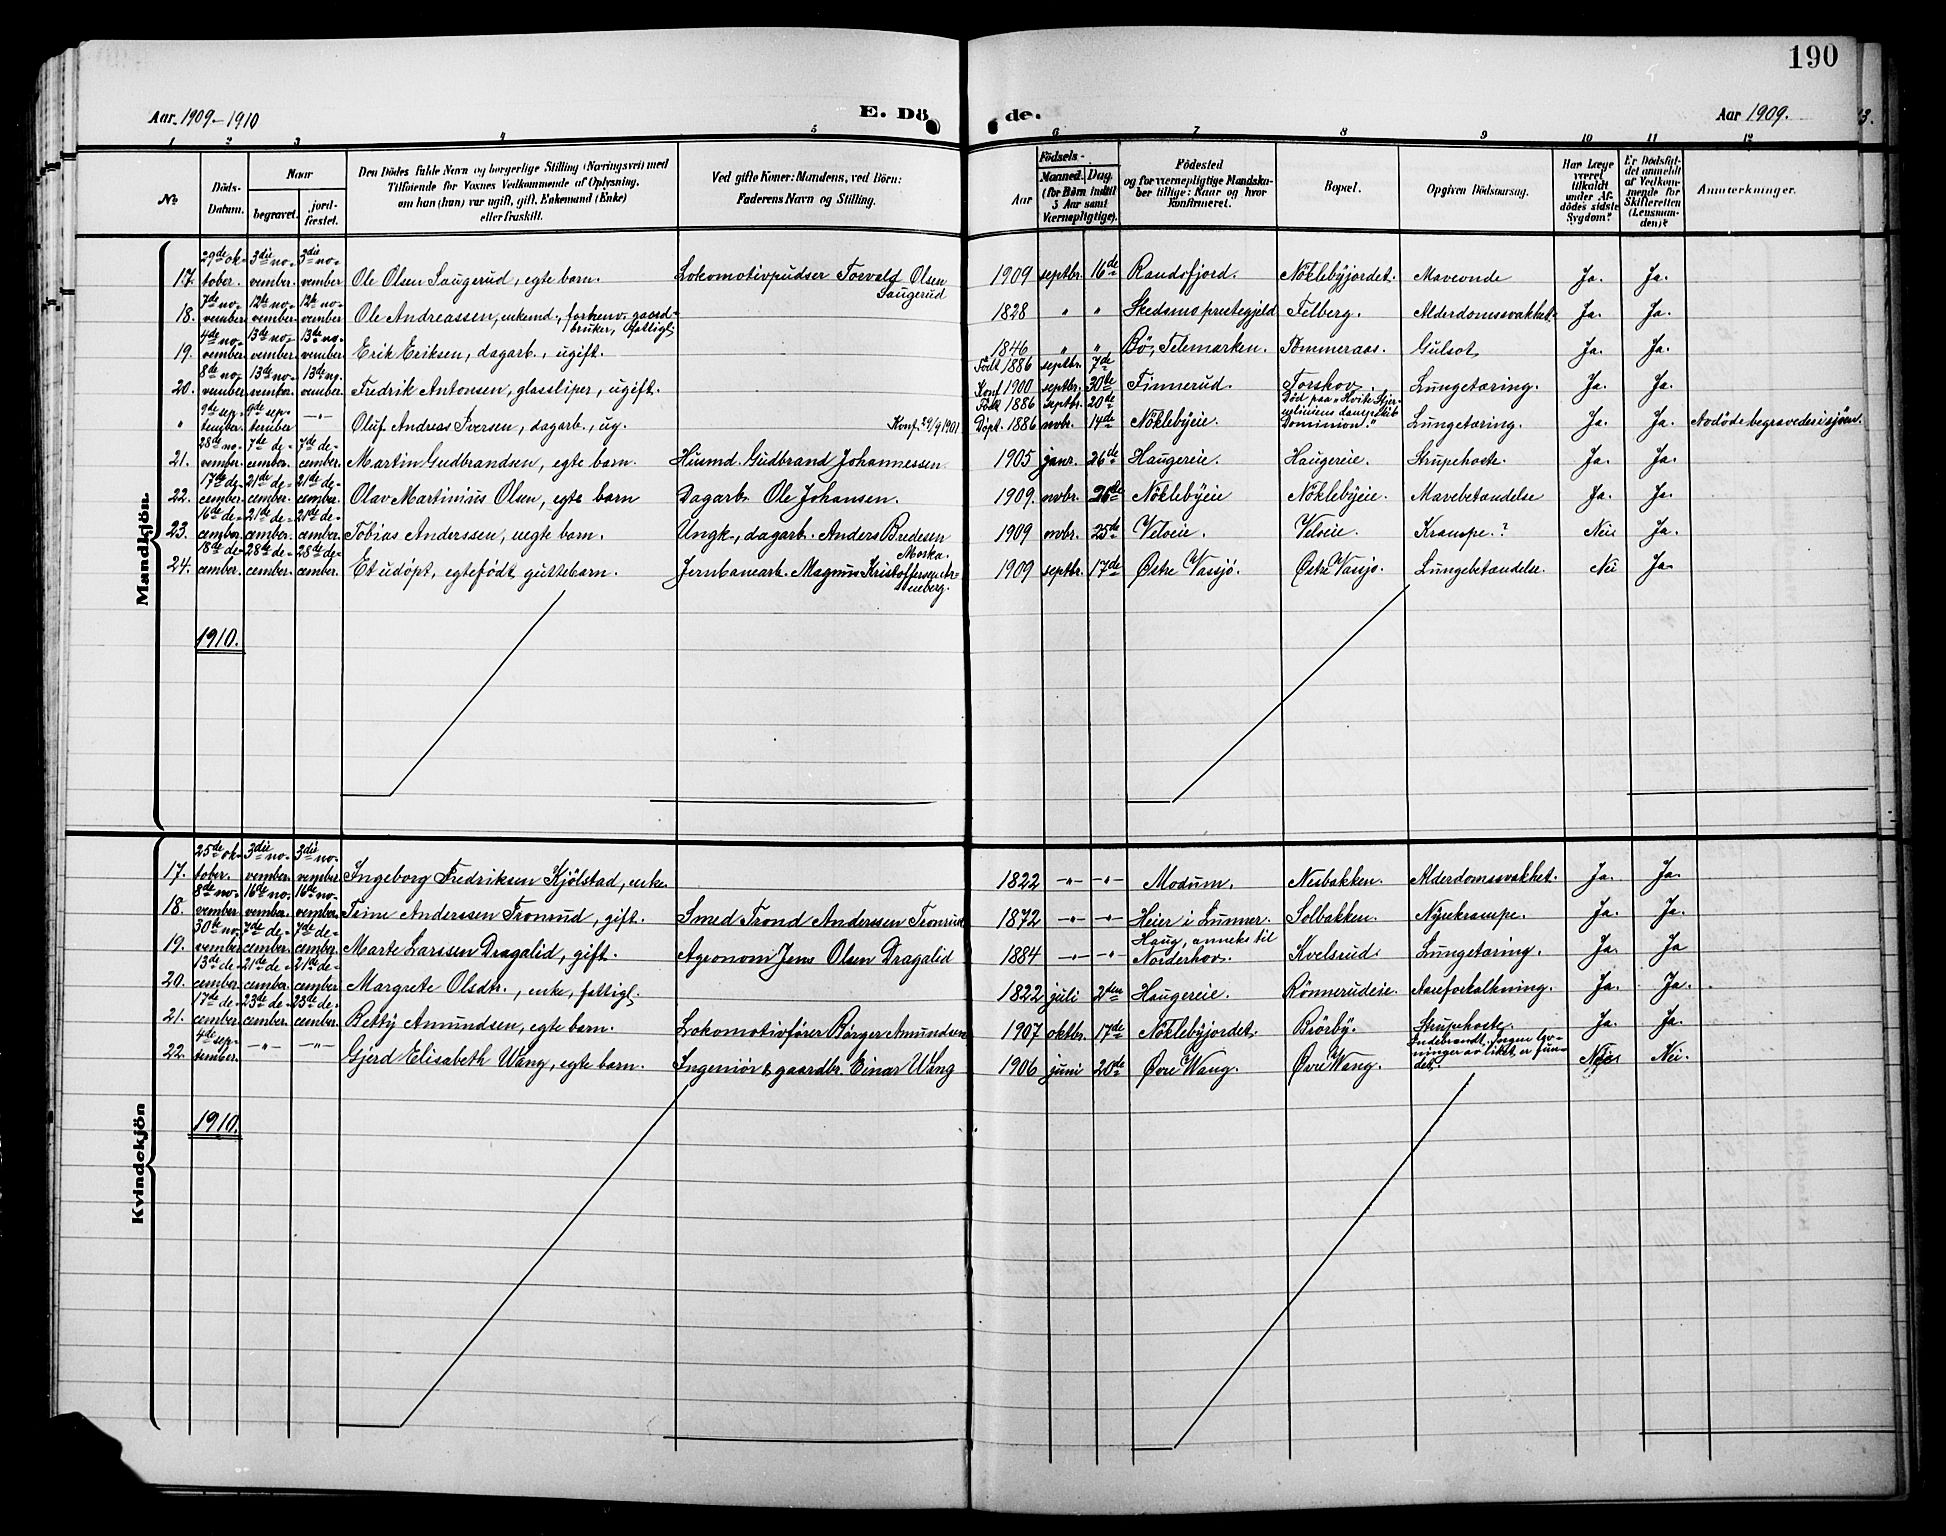 190
Aar. 1909-1910 E. Dö de. Aar 1909.
1 2 3 4 5 6 7 8 9 10 11 12 13.
No. Döds-Datum. Naar begravet. jord-festet. Den Dödes fulde Navn og borgerlige Stilling (Næringsvei) med Tilföiende for Voxnes Vedkommende af Oplysning, om han (hun) var ugift, gift, Enkemand (Enke) eller fraskilt. Ved gifte Koner: Mandens, ved Börn: Faderens Navn og Stilling. Aar Födsels- Maaned. Dag (for Börn indtil 5 Aar samt Værnepligtige). Födested og for værnepligtige Mandska-ber tillige: Naar og hvor Konfirmeret. Bopæl. Opgiven Dödsaarsag. Har Læge været tilkaldt under Af-dödes sidste Sygdom? Er Dödsfal-det anmeldt af Vedkom-mende for Skifteretten (Lensman-den)? Anmerkninger.
Mandkjön.
17. 29de ok-tober. 3die no-vember. 3die no-vember Ole Olsen Saugerud, egte barn. Lokomotivpudser Torvald Olsen Saugerud 1909 septbr. 16de Randsfjord. Nöklebyjordet. Maveonde Ja. Ja.
18. 7de no-vember 12te no-vember. 12te no-vember Ole Andreassen, enkemd., forhenv. gaard-bruker, fattigl. 1828 " " Skedsmo prestegjeld Felberg. Alderdomssvakhet. Ja. Ja.
19. 4de no-vember 13de no-vember. 13de no-vember. Erik Eriksen, dagarb., ugift. 1846 " " Bö, Telemarken. Tømmeraas. Gulsot Ja. Ja.
20. 8de no-vember 13de no-vember 13de no-vember. Fredrik Antonsen, glassliper, ugift. Födt 1886 septbr. 7de Konf. 1900 septbr. 30te Finnerud. Torshov. Lungetæring. Ja. Ja.
" 9de sep-tember. 9de sep-tember -"- Oluf Andreas Iversen, dagarb., ug. Konf. 29/9 1901 Födt 1886 septbr. 20de Döpt. 1886 novbr. 14de Nöklebyeie. Död paa "Hvite Stjer-nelinjens dampskib Dominion." Lungetæring. Ja. Ja. Avdöde begravedes i sjöen.
21. 28de no-vember. 7de de-cember. 7de de-cember. Martin Gudbrandsen, egte barn. Husmd. Gudbrand Johannessen 1905 janr. 26de Haugereie. Haugereie. Strupehoste. Ja. Ja.
22. 17de de-cember. 21de de-cember. 21de de-cember. Olav Martinius Olsen, egte barn Dagarb. Ole Johansen. 1909. novbr. 26de Nöklebyeie Nöklebyeie. Mavebetændelse Ja. Ja.
23. 16de de-cember. 21de de-cember. 21de de-cember. Tobias Anderssen, uegte barn. Ungk., dagarb. Anders Bredesen Moska. 1909 novbr. 25de Velseie. Velseie. Krampe.? Nei Ja.
24. 18de de-cember. 28de de-cember. 28de de-cember. Et udöpt, egtefödt guttebarn. Jernbanearb. Magnus Kristoffersen Ar-nenberg. 1909 septbr. 17de Østre Vassjö. Østre Vassjø. Lungebetændelse. Nei Ja.
1910.
Kvindekjön
17. 25de ok-tober. 3die no-vember. 3die no-vember. Ingeborg Fredriksen Kjölstad, enke. 1822 -"- -"- Modum. Nesbakken. Alderdomssvakhet. Ja. Ja.
18. 8de no-vember 16de no-vember. 16de no-vember. Trine Anderssen Tronrud, gift. Smed Trond Anderssen Tronrud 1872 -"- -"- Heier i Lunner. Solbakken. Nyrekrampe. Ja. Ja.
19. 30te no-vember 7de de-cember. 7de de-cember. Marte Larssen Dragalid, gift. Agronom Jens Olsen Dragalid 1884 -"- -"- Haug, anneks til Norderhov. Kvelsrud. Lungetæring. Ja. Ja
20. 13de de-cember 21de de-cember. 21de de-cember. Margrete Olsdtr., enke, fattigl. 1822 juli 2den Haugereie. Rönnerudeie. Aareforkalkning. Ja. Ja.
21. 17de de-cember. 23de de-cember. 23de de-cember. Betty Amundsen, egte barn. Lokomotivfører Børger Amundsen 1907 oktbr. 17de Nöklebyjordet. Brörby. Strupehoste. Ja. Ja.
22. 4de sep-tember. -"- -"- Gjerd Elisabeth Wang, egte barn. Ingeniör & gaardbr. Einar Wang 1906 juni 20de Øvre Wang. Øvre Wang. Indebrændt. Ingen lev-ninger av liket er fun-det. Nei Nei.
1910.